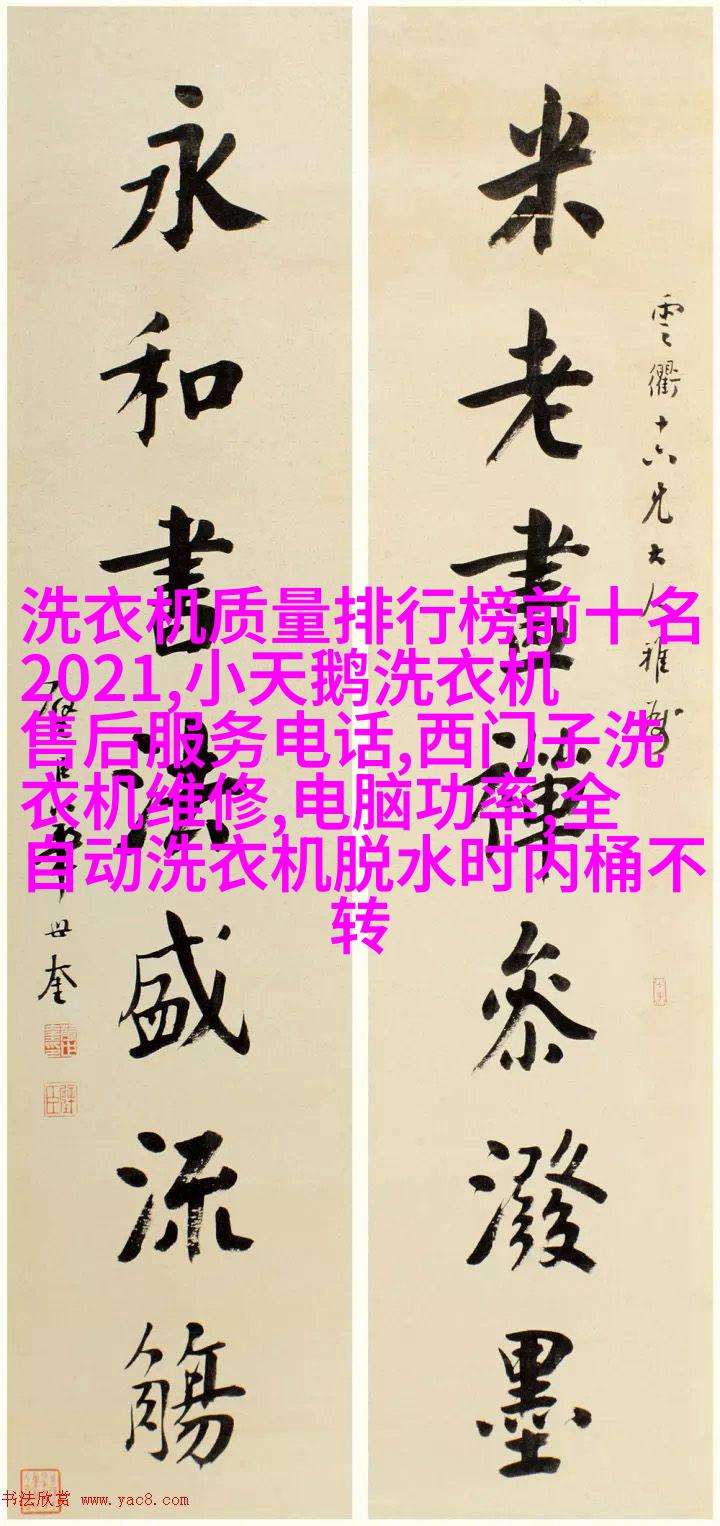 雲衢十六兄大人雅屬
米老畫禪參潑墨
永和書盛流觴
世奎
洗衣机质量排行榜前十名
2021,小天鹅洗衣机
售后服务电话,西门子洗
衣机维修,电脑功率,全
自动洗衣机脱水时内桶不
转
书法欣赏 www.yac8.com